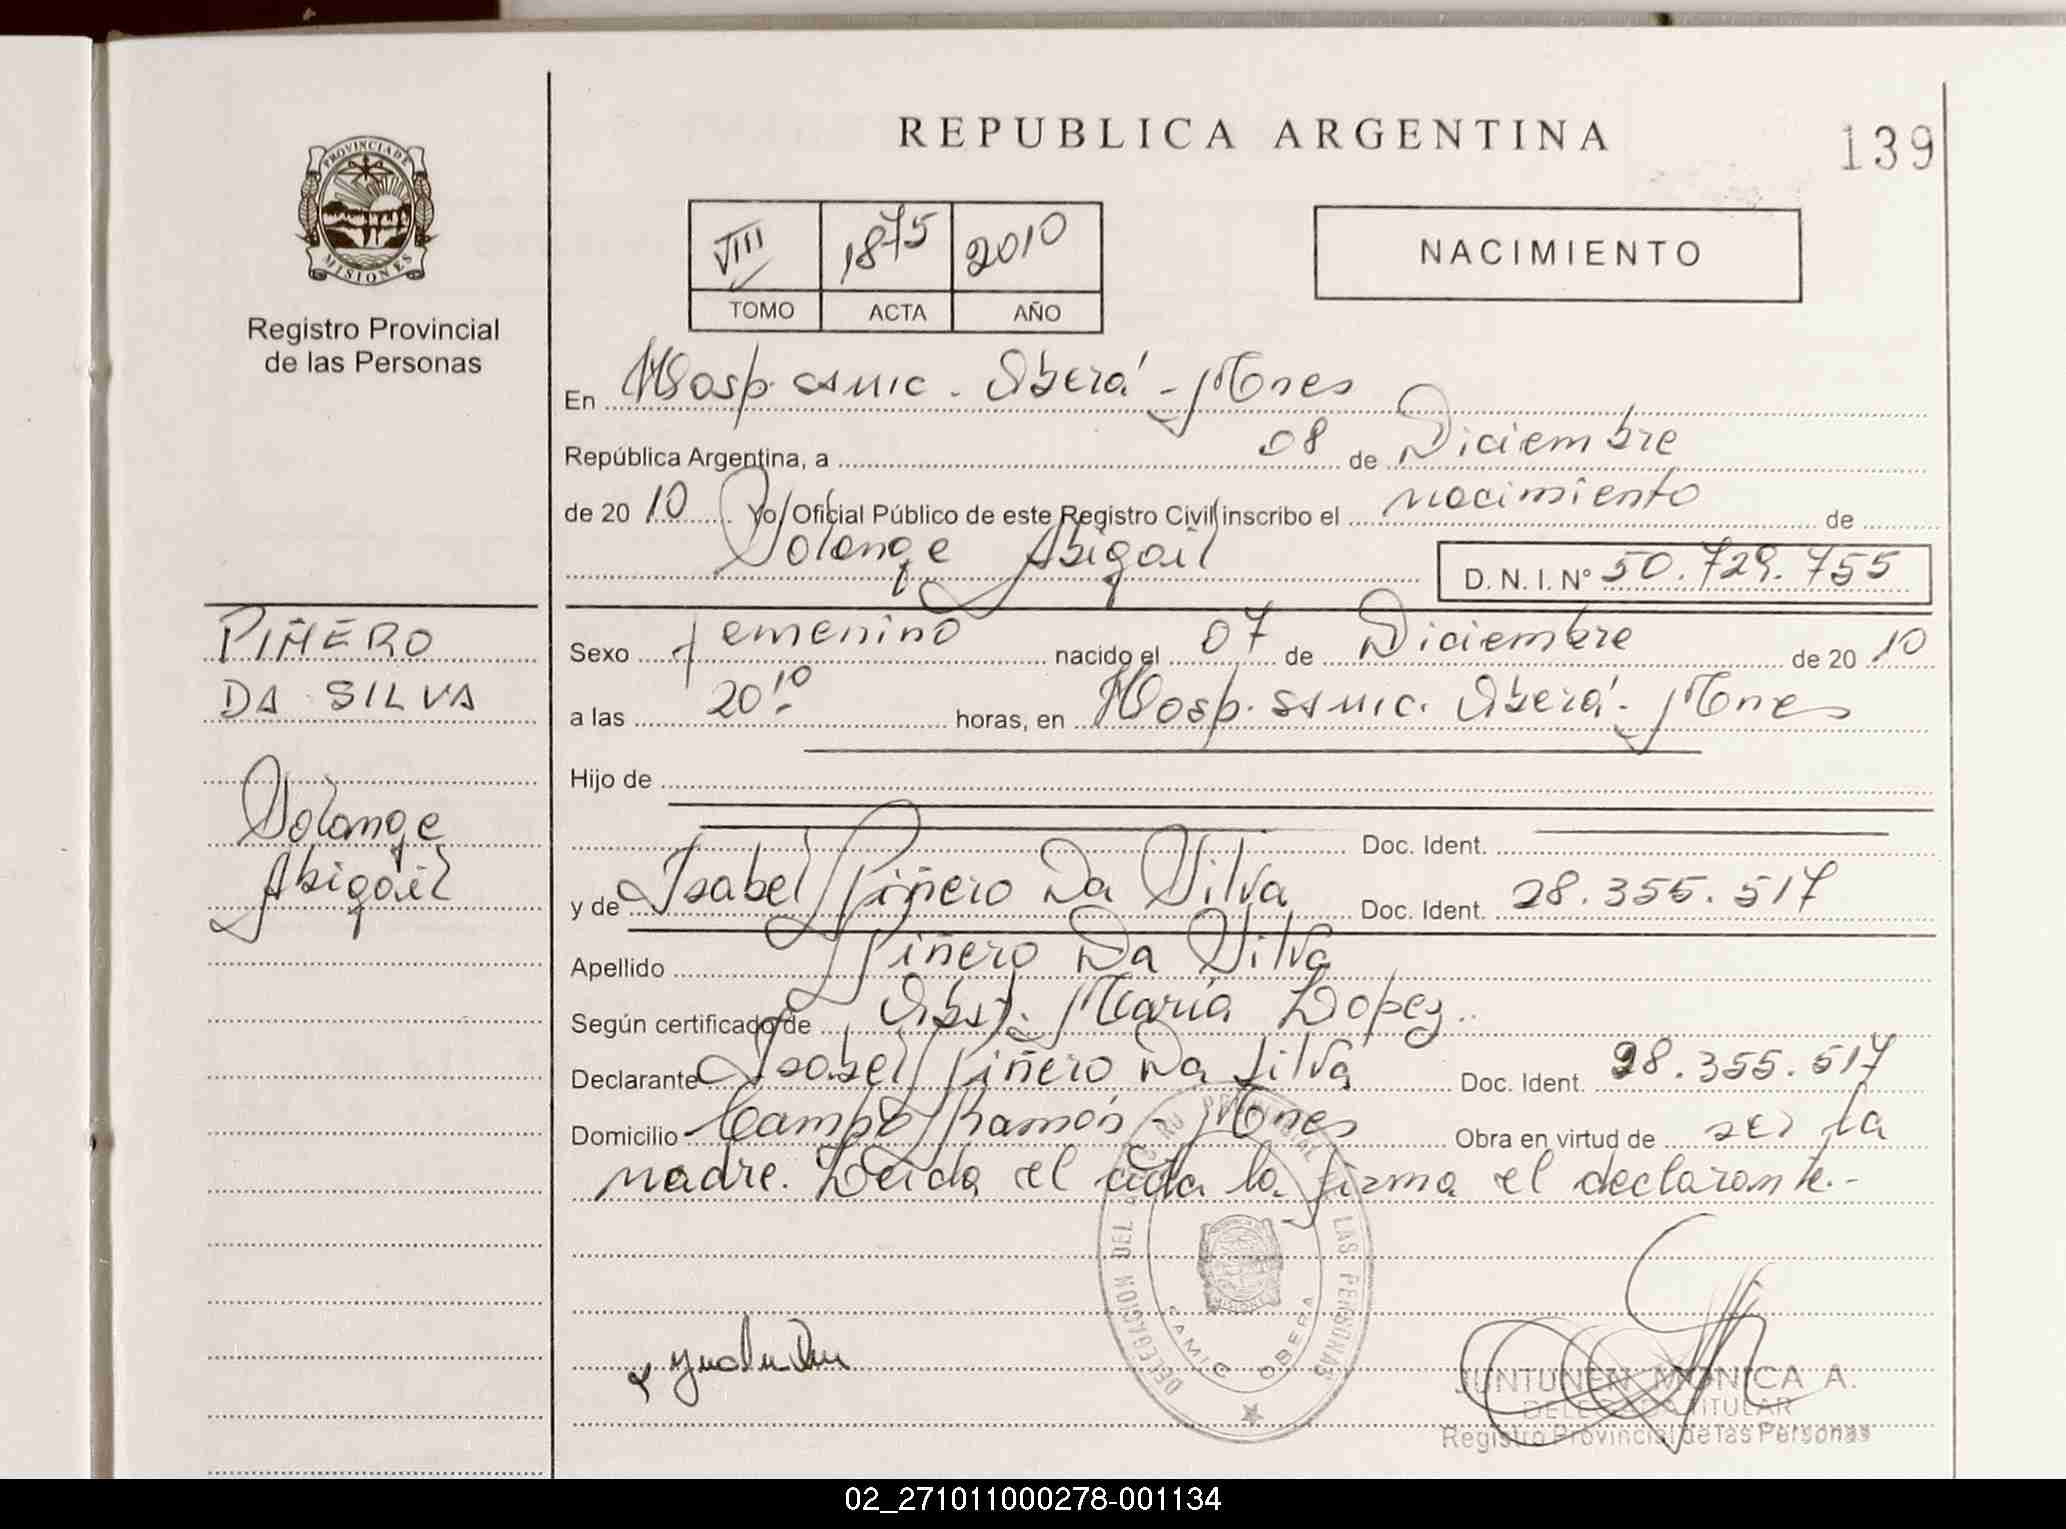 REPUBLICA ARGENTINA
139
PROVINCIA DE
MISIONES
Registro Provincial
de las Personas
VIII 1875 2010
TOMO ACTA AÑO
NACIMIENTO
En Hosp. SAMIC. Oberá - Mnes
República Argentina, a 08 de Diciembre
de 2010 Yo, Oficial Público de este Registro Civil inscribo el nacimiento de
Solange Abigail
D. N. I. N° 50.729.755
PIÑERO
DA SILVA
Solange
Abigail
Sexo femenino nacido el 07 de Diciembre de 2010
a las 20:10 horas, en Hosp. SAMIC. Oberá - Mnes
Hijo de
Doc. Ident.
y de Isabel Piñero Da Silva Doc. Ident. 28.355.517
Apellido Piñero Da Silva
Según certificado de Obst. María Lopez.
Declarante Isabel Piñero Da Silva Doc. Ident. 28.355.517
Domicilio Campo Ramón - Mnes Obra en virtud de ser la
madre. Leida el acta la firma el declarante.-
DELEGACION DEL REGISTRO PROVINCIAL DE LAS PERSONAS
SAMIC OBERA
JUNTUNEN MONICA A.
DELEGADA TITULAR
Registro Provincial de las Personas
02_271011000278-001134